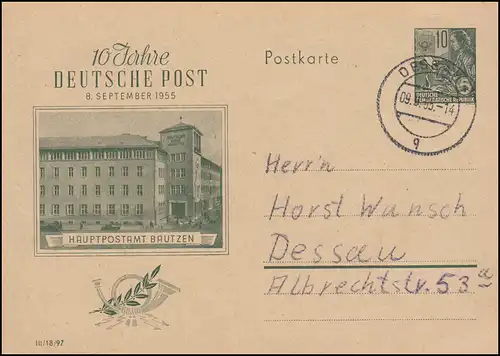 10 Jahre
DEUTSCHE POST
8. SEPTEMBER 1955
HAUPTPOSTAMT BAUTZEN
III/18/97
Postkarte
10
DEUTSCHE
DEMOKRATISCHE REPUBLIK
09.
-14
Herrn
Horst Wunsch
Dessau
Albrechtstr. 53 a